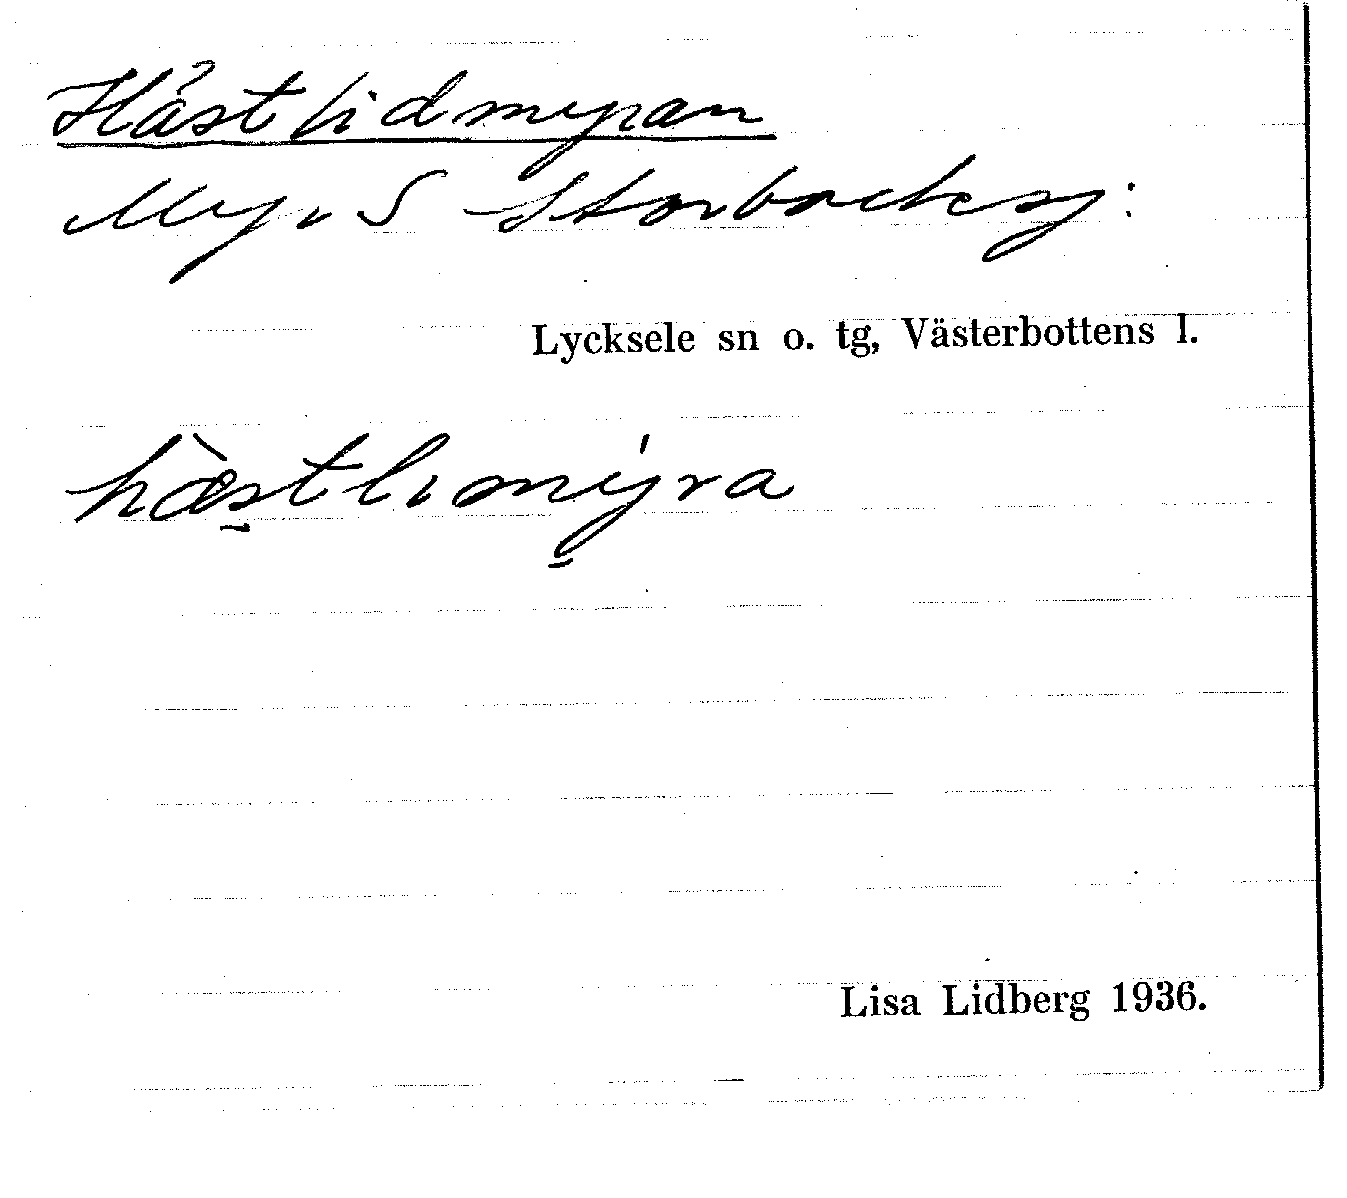 Hästlidmyran
Myr i S Storbacksj:
Lycksele sn o. tg, Västerbottens l.
hæ̀stlımýra
Lisa Lidberg 1936.